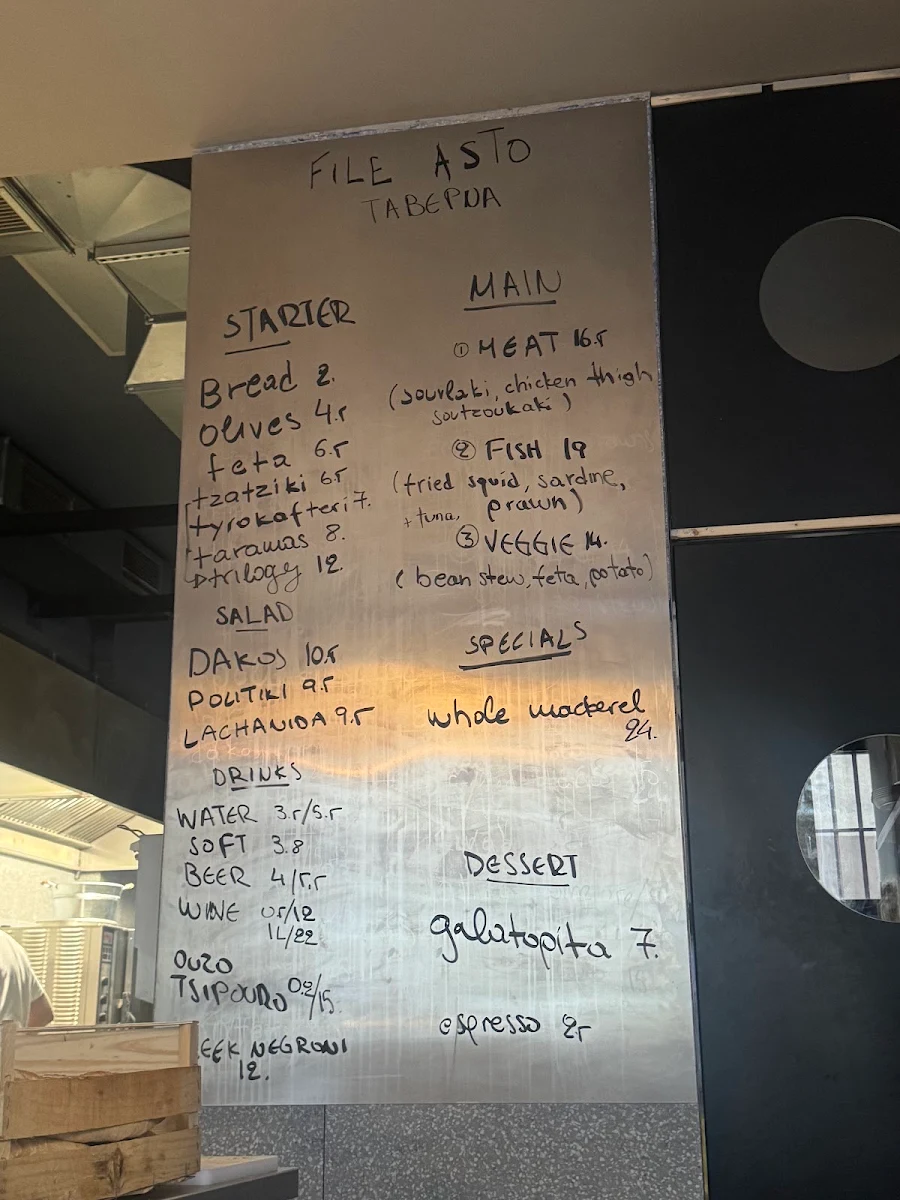 FILE ASTO
ΤΑΒΕΡΝΑ
STARTER
Bread 2.
olives 4.5
feta 6.5
tzatziki 6.5
tyrokafteri 7.
taramas 8.
trilogy 12.
SALAD
DAKOS 10.5
POLITIKI 9.5
LACHANIDA 9.5
DRINKS
WATER 3.5/5.5
SOFT 3.8
BEER 4/5.5
WINE 0.5/12
1L/22
OUZO
TSIPOURO 0.2/15
EEK NEGRONI
12.
MAIN
① MEAT 16.5
(souvlaki, chicken thigh
soutzoukaki)
② FISH 19
(fried squid, sardine,
+ tuna, prawn)
③ VEGGIE 14.
(bean stew, feta, potato)
SPECIALS
whole mackerel
24.
DESSERT
galatopita 7.
espresso 2.5